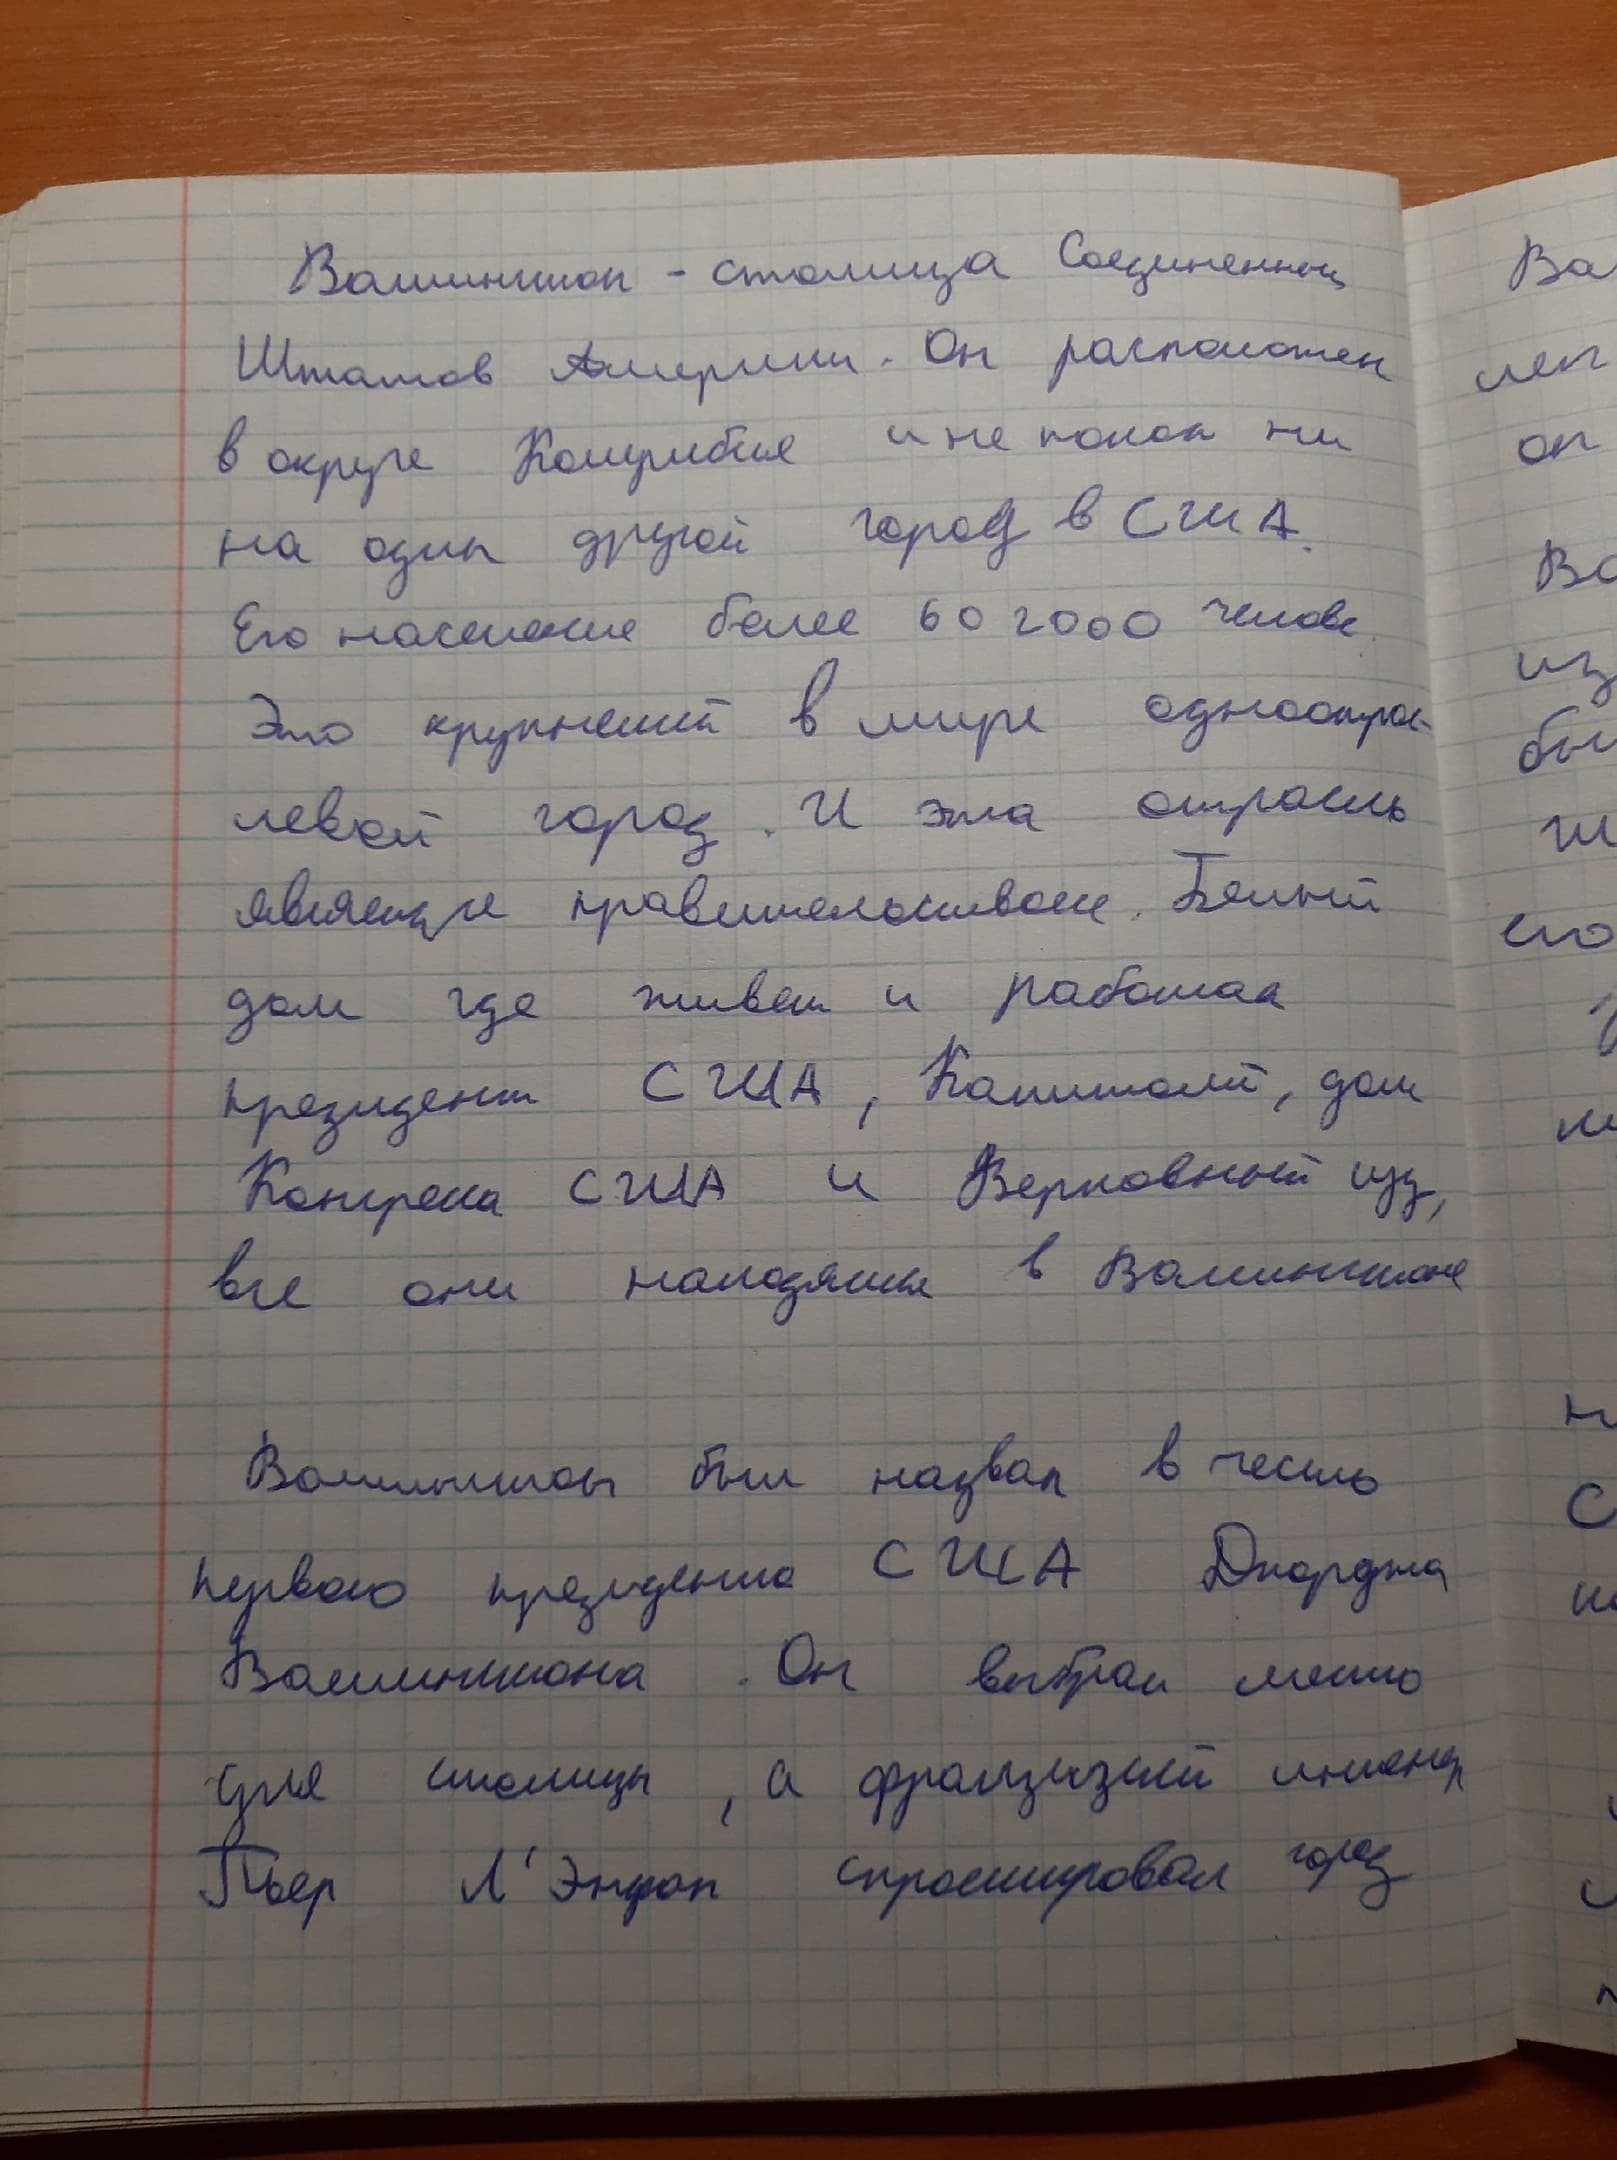 Вашингтон - столица Соединенных
Штатов Америки. Он расположен
в округе Колумбия и не похож ни
на один другой город в США.
Его население более 602000 челове
Это крупнейший в мире одноотрас-
левой город. И эта отрасль
является правительством. Белый
дом где живет и работает
президент США, Капитолий, дом
Конгресса США и Верховный суд,
все они находятся в Вашингтоне
Вашингтон был назван в честь
первого президента США Джорджа
Вашингтона. Он выбрал место
для столицы, а французский инженер
Пьер Л'Энфан спроектировал город
Ва
лет
он
Ва
из
бы
его